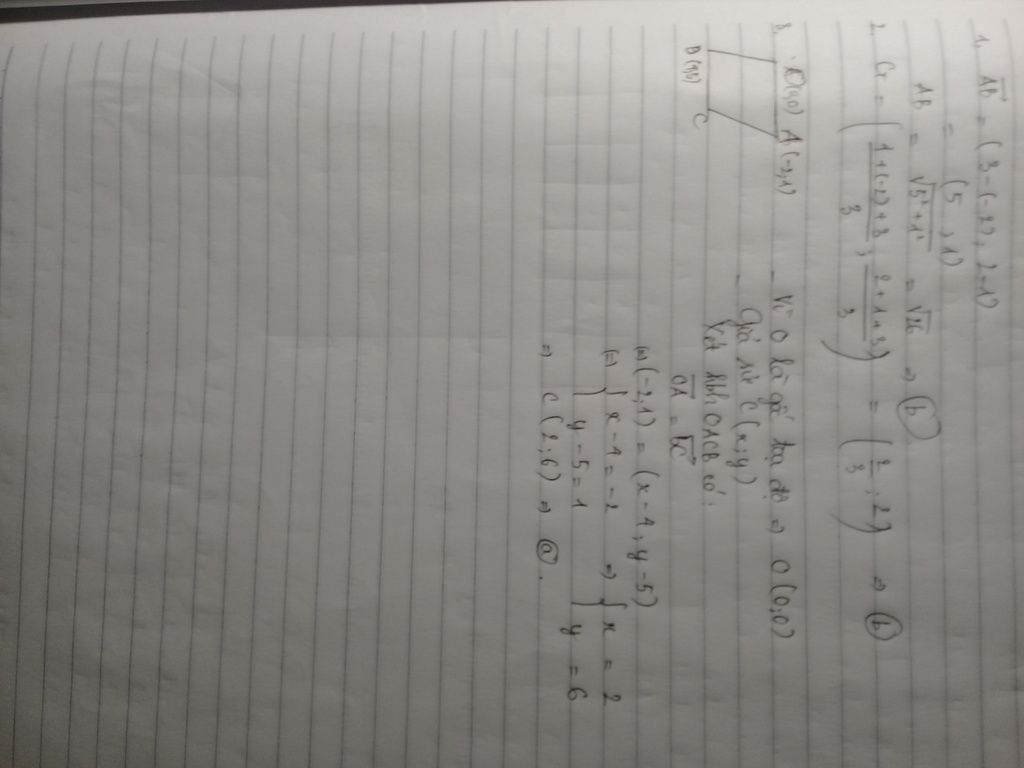 1, AB = (3-(-2), 2-1)
= (5, 1)
AB = √5²+1² = √26 ⇒ (b)
2. G = (1+(-2)+3 / 3, 2+1+3 / 3) = (2/3, 2) ⇒ (b)
3, O(0,0) A(-2,1)
B C
- Vì O là gố tọa độ ⇒ O(0;0)
- Giả sử C(x;y)
Xét hbh OACB có:
OA = BC
(=) (-2,1) = (x-4; y-5)
(=) { x-4 = -2 ⇒ { x = 2
y-5 = 1 y = 6
⇒ C(2;6) ⇒ (a).